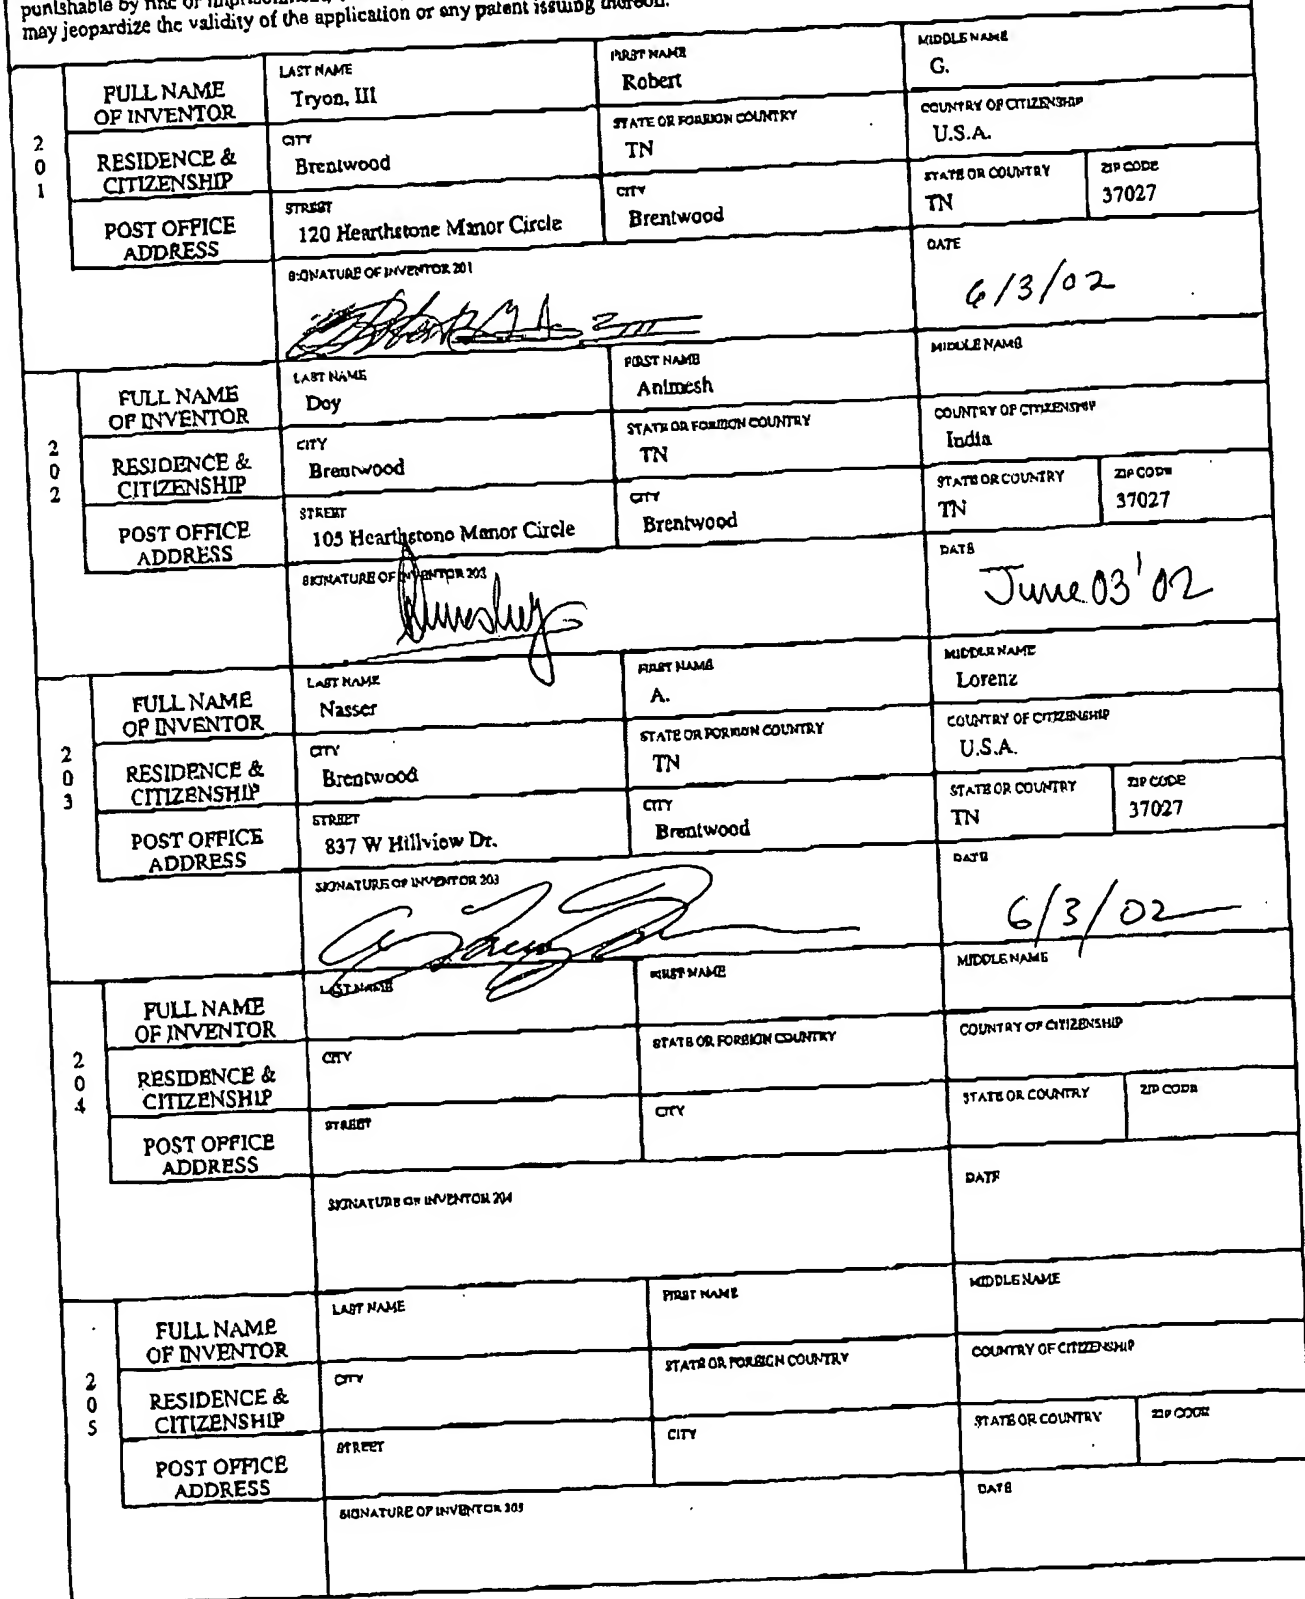 punishable by fine or
may jeopardize the validity of the application or any patent issuing thereon.
201
FULL NAME OF INVENTOR
LAST NAME
Tryon, III
FIRST NAME
Robert
MIDDLE NAME
G.
RESIDENCE & CITIZENSHIP
CITY
Brentwood
STATE OR FOREIGN COUNTRY
TN
COUNTRY OF CITIZENSHIP
U.S.A.
POST OFFICE ADDRESS
STREET
120 Hearthstone Manor Circle
CITY
Brentwood
STATE OR COUNTRY
TN
ZIP CODE
37027
SIGNATURE OF INVENTOR 201
DATE
6/3/02
202
FULL NAME OF INVENTOR
LAST NAME
Dey
FIRST NAME
Animesh
MIDDLE NAME
RESIDENCE & CITIZENSHIP
CITY
Brentwood
STATE OR FOREIGN COUNTRY
TN
COUNTRY OF CITIZENSHIP
India
POST OFFICE ADDRESS
STREET
105 Hearthstone Manor Circle
CITY
Brentwood
STATE OR COUNTRY
TN
ZIP CODE
37027
SIGNATURE OF INVENTOR 202
DATE
June 03 '02
203
FULL NAME OF INVENTOR
LAST NAME
Nasser
FIRST NAME
A.
MIDDLE NAME
Lorenz
RESIDENCE & CITIZENSHIP
CITY
Brentwood
STATE OR FOREIGN COUNTRY
TN
COUNTRY OF CITIZENSHIP
U.S.A.
POST OFFICE ADDRESS
STREET
837 W Hillview Dr.
CITY
Brentwood
STATE OR COUNTRY
TN
ZIP CODE
37027
SIGNATURE OF INVENTOR 203
DATE
6/3/02
204
FULL NAME OF INVENTOR
LAST NAME
FIRST NAME
MIDDLE NAME
RESIDENCE & CITIZENSHIP
CITY
STATE OR FOREIGN COUNTRY
COUNTRY OF CITIZENSHIP
POST OFFICE ADDRESS
STREET
CITY
STATE OR COUNTRY
ZIP CODE
SIGNATURE OF INVENTOR 204
DATE
205
FULL NAME OF INVENTOR
LAST NAME
FIRST NAME
MIDDLE NAME
RESIDENCE & CITIZENSHIP
CITY
STATE OR FOREIGN COUNTRY
COUNTRY OF CITIZENSHIP
POST OFFICE ADDRESS
STREET
CITY
STATE OR COUNTRY
ZIP CODE
SIGNATURE OF INVENTOR 205
DATE